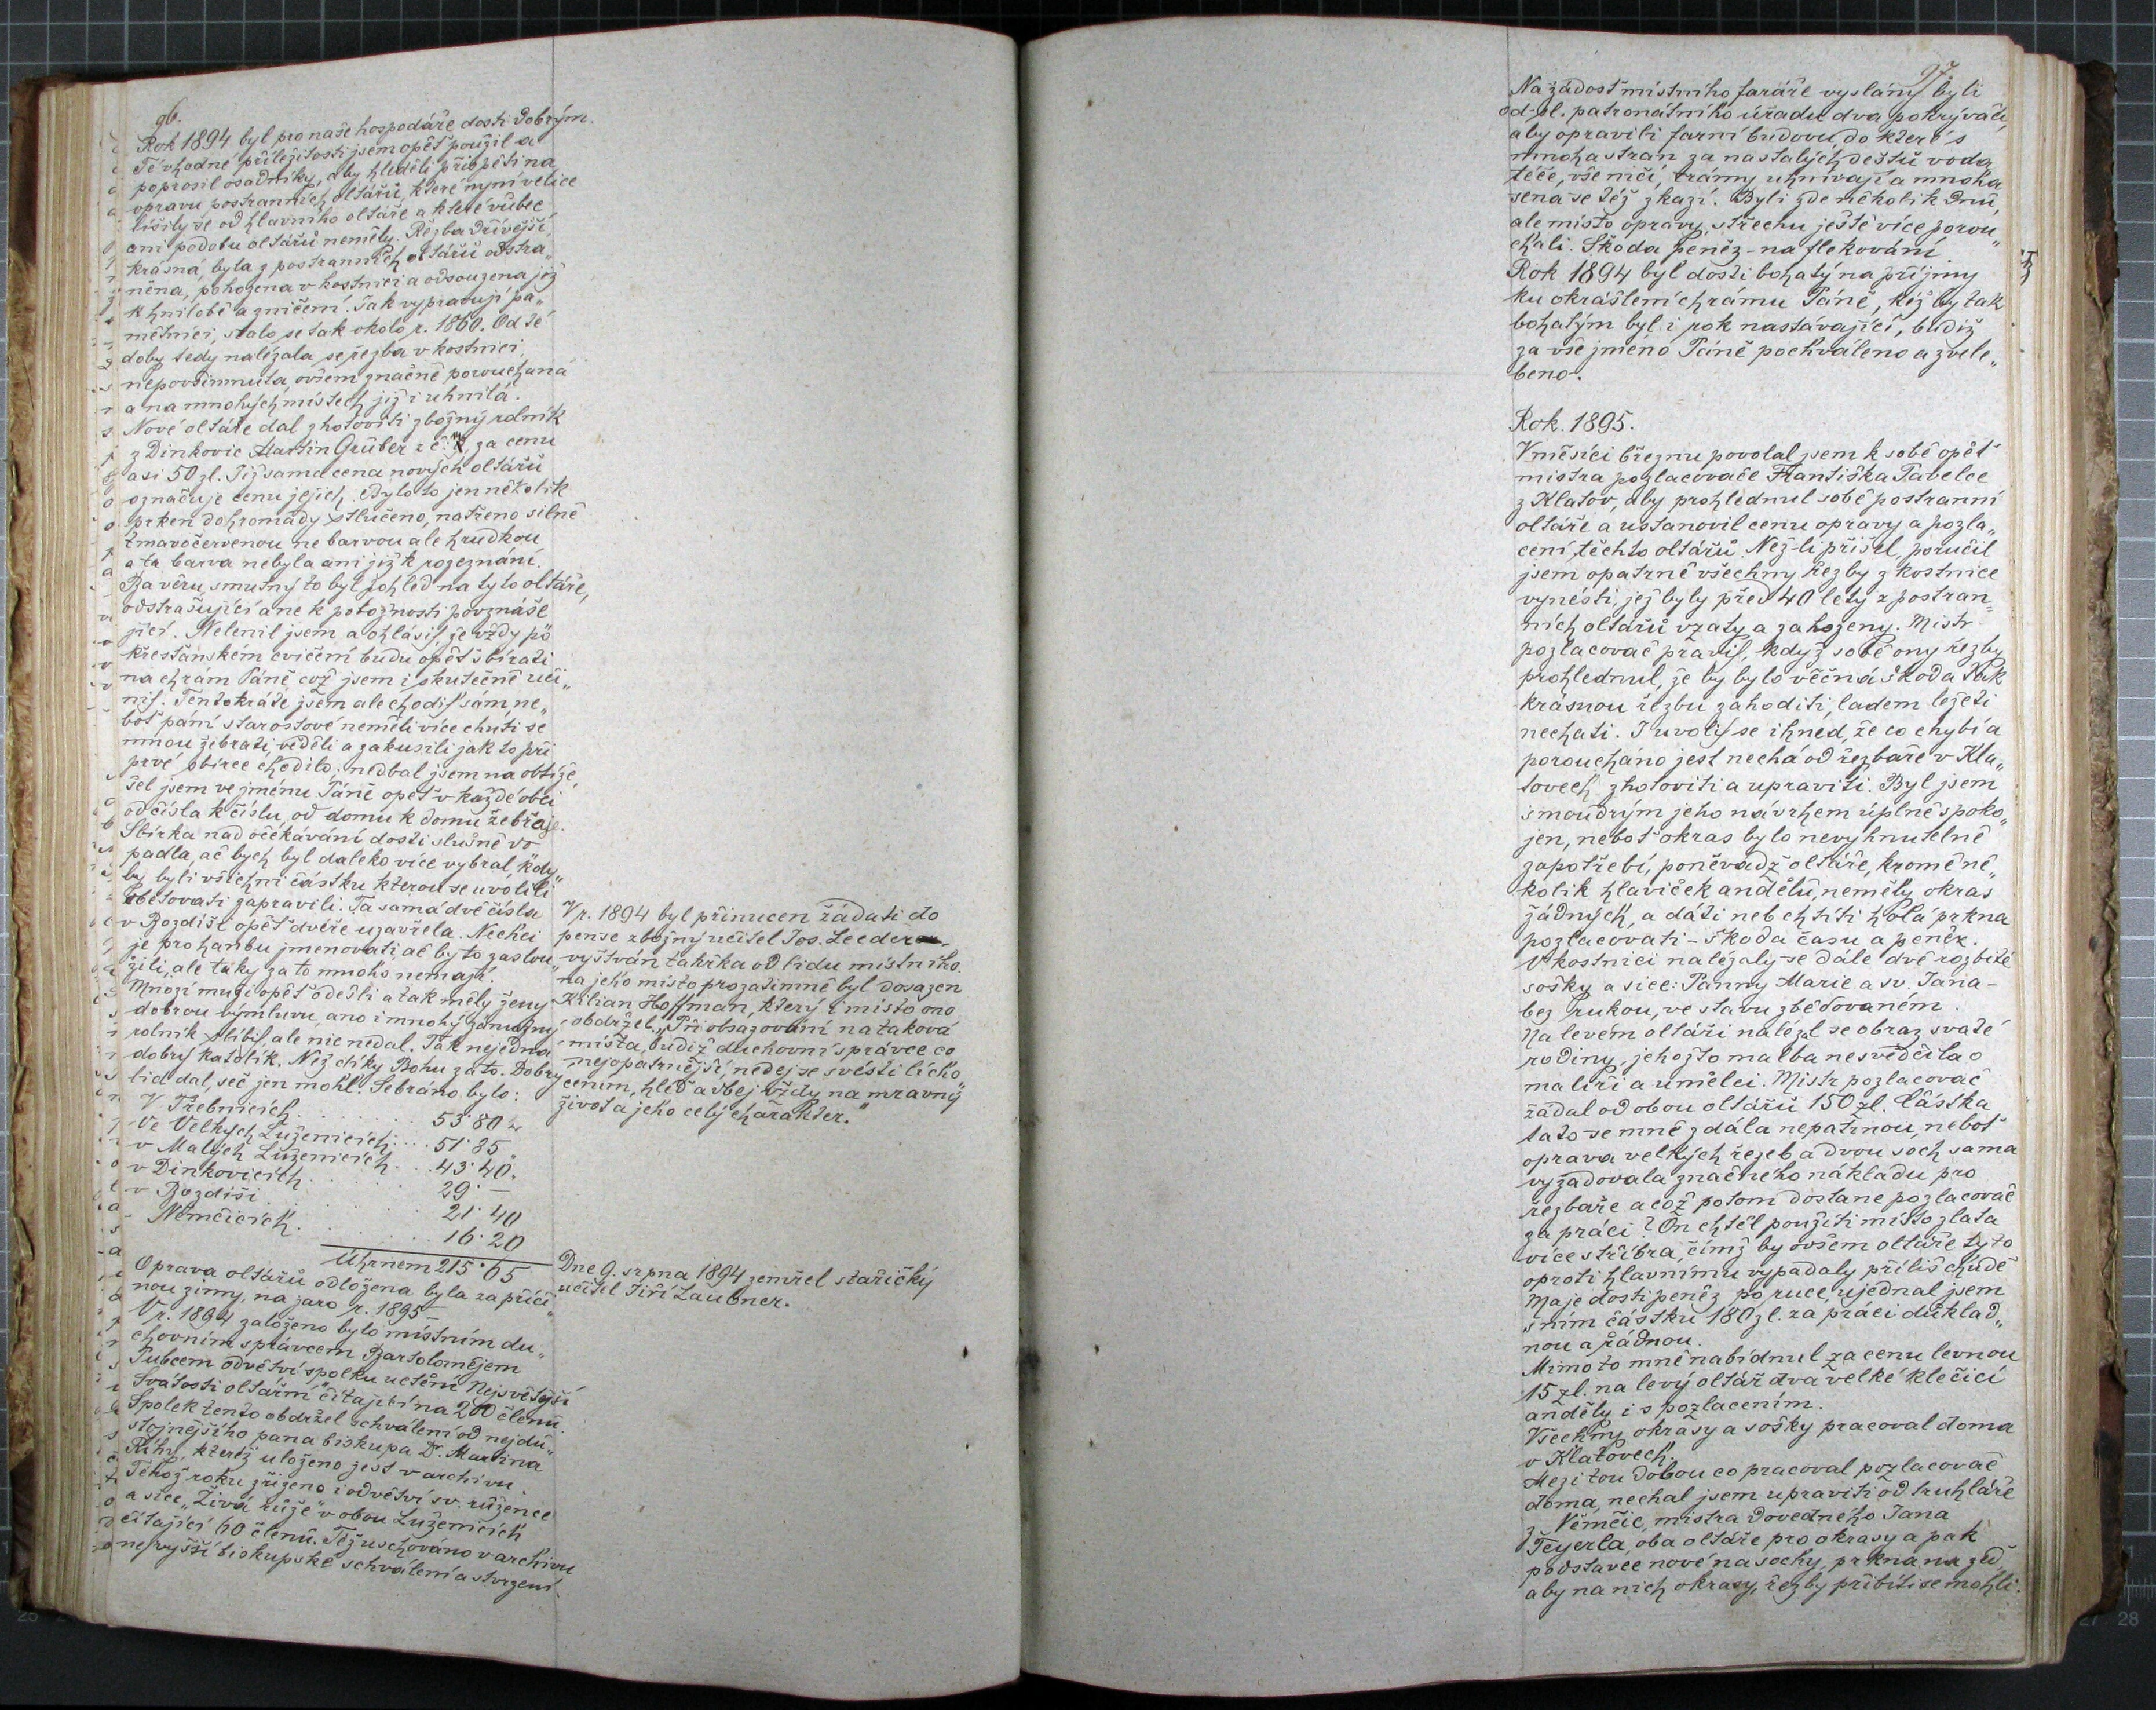 96.
Rok 1894 byl pro naše hospodáře dosti dobrým.
Té vhodné příležitosti jsem opět použil a
poprosil osadníky, aby hleděli přispěti na
opravu postranních oltářů, které nyní velice
lišily se od hlavního oltáře a které vůbec
ani podobu oltářů neměly. Řezba dřívější,
krásná, byla z postranních oltářů odstra„
něna, pohozena v kostnici a odsouzena již
k hnilobě a zničení. Jak vypravují pa„
mětníci, stalo se tak okolo r. 1860. Od té
doby tedy nalézala se řezba v kostnici,
nepovšimnuta, ovšem značně porouchaná
a na mnohých místech již i uhnilá.
Nové oltáře dal zhotoviti zbožný rolník
z Dinkovic Martin Grüber z č: za cenu
asi 50 zl. Již sama cena nových oltářů
označuje cenu jejich. Bylo to jen několik
prken dohromady stlučeno, natřeno silně
tmavočervenou ne barvou ale hrudkou
a ta barva nebyla ani již k rozeznání.
Ba věru, smutný to byl pohled na tyto oltáře,
odstrašující a ne k pobožnosti povznáše
jící. Nelenil jsem a ohlásil, že vždy po
křesťanském cvičení budu opět sbírati
na chrám Páně, což jsem i skutečně uči„
nil. Tentokráte jsem ale chodil sám, ne„
boť páni starostové neměli více chuti se
mnou žebrati, věděli a zakusili jak to při
prvé sbírce chodilo; nedbal jsem na obtíže,
šel jsem ve jménu Páně opět v každé obci
od čísla k číslu, od domu k domu žebraje.
Sbírka nad očekávání dosti slušně do
padla, ač bych byl daleko více vybral, kdy„
by byli všichni částku kterou se uvolili
obětovati zapravili. Ta samá dvě čísla
v Bozdiši opět dvéře uzavřela. Nechci
je pro hanbu jmenovati, ač by to zaslou„
žili, ale taky za to mnoho nemají.
Mnozí muži opět odešli a tak měly ženy
dobrou výmluvu, ano i mnohý zámožný
rolník slíbil, ale nic nedal. Tak nejedná
dobrý katolík. Než díky Bohu za to. Dobrý
lid dal, seč jen mohl. Sebráno bylo:
V Třebnicích . . . . . . 53·80 kr
Ve Velkých Luženicích . . . 51·85 „
v Malých Luženicích . . . 43·40.
v Dinkovicích . . . . . 29·—
v Bozdiši . . . . . 21·40
Němčicích . . . . . 16·20
Úhrnem 215·65
Oprava oltářů odložena byla za příči„
nou zimy, na jaro r. 1895.—
V r. 1894 založeno bylo místním du„
chovním správcem Bartolomějem
Pubcem odvětví spolku uctění Nejsvětější
Svátosti oltářní čítající na 200 členů.
Spolek tento obdržel schválení od nejdů„
stojnějšího pana biskupa Dr. Martina
Říhy, kteréž uloženo jest v archivu.
Téhož roku zřízeno i odvětví sv. růžence
a sice „Živá růže" v obou Luženicích
čítající 60 členů. Též uschováno v archivu
nejvyšší biskupské schválení a stvrzení.
V r. 1894 byl přinucen žádati do
pense zbožný učitel Jos. Leeder
vyštván takřka od lidu místního.
na jeho místo prozatimně byl dosazen
Kilian Hoffman, který i místo ono
obdržel. „Při obsazování na taková
místa, budiž duchovní správce co
nejopatrnější, nedej se svésti lícho„
cením, hleď a dbej vždy na mravný
život a jeho celý charakter."
Dne 9. srpna 1894 zemřel stařičký
učitel Jiří Laubner.
97.
Na žádost místního faráře vysláni byli
od sl. patronátního úřadu dva pokrývači,
aby opravili farní budovu, do které s
mnoha stran za nastalých dešťů voda
teče, vše ničí, trámy uhnívají a mnoho
sena se též zkazí. Byli zde několik dnů,
ale místo opravy, střechu ještě více porou„
chali. Škoda peněz – na flekování.
Rok 1894 byl dosti bohatý na příjmy
ku okrášlení chrámu Páně, kéž by tak
bohatým byl i rok nastávající, budiž
za vše jméno Páně pochváleno a zvele„
beno.
Rok. 1895.
V měsíci březnu povolal jsem k sobě opět
mistra pozlacovače Františka Pavelce
z Klatov, aby prohlédnul sobě postranní
oltáře a ustanovil cenu opravy a pozla„
cení těchto oltářů. Než-li přišel, poručil
jsem opatrně všechny řezby z kostnice
vynésti, jež byly před 40 lety z postran„
ních oltářů vzaty a zahozeny. Mistr
pozlacovač pravil, když sobě ony řezby
prohlednul, že by bylo věčná škoda tak
krásnou řezbu zahoditi, ladem ležeti
nechati. I uvolil se ihned, že co chybí a
porouchano jest nechá od řezbáře v Kla„
tovech zhotoviti a upraviti. Byl jsem
s moudrým jeho návrhem úplně spoko„
jen, neboť okras bylo nevyhnutelně
zapotřebí, poněvadž oltáře, kromě ně„
kolik hlaviček andělů, neměly okras
žádných, a dáti neb chtíti holá prkna
pozlacovati – škoda času a peněz.
V kostnici nalézaly se dále dvě rozbité
sošky a sice: Panny Marie a sv. Jana –
bez rukou, ve stavu zbědovaném.
Na levém oltáři nalézal se obraz svaté
rodiny, jehožto malba nesvědčila o
malíři a umělci. Mistr pozlacovač
žádal od obou oltářů 150 zl. Částka
tato se mně zdála nepatrnou, neboť
oprava velkých řezeb a dvou soch sama
vyžadovala značného nákladu pro
řezbáře a což potom dostane pozlacovač
za práci? On chtěl použíti místo zlata
více stříbra, čímž by ovšem oltáře tyto
oproti hlavnímu vypadaly příliš chudě.
Maje dosti peněz po ruce, ujednal jsem
s ním částku 180 zl. za práci důklad„
nou a řádnou.
Mimo to mně nabídnul za cenu levnou
15 zl. na levý oltář dva velké klečící
anděly i s pozlacením.
Všechny okrasy a sošky pracoval doma
v Klatovech.
Mezi tou dobou co pracoval pozlacovač
doma, nechal jsem upraviti od truhláře
z Němčic, mistra dovedného Jana
Teyerla, oba oltáře pro okrasy a pak
podstavce nové na sochy, prkna na zeď,
aby na nich okrasy, řezby přibíti se mohli.